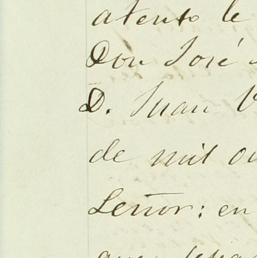 atento le
Don José
D. Juan
de mil
Señor: en